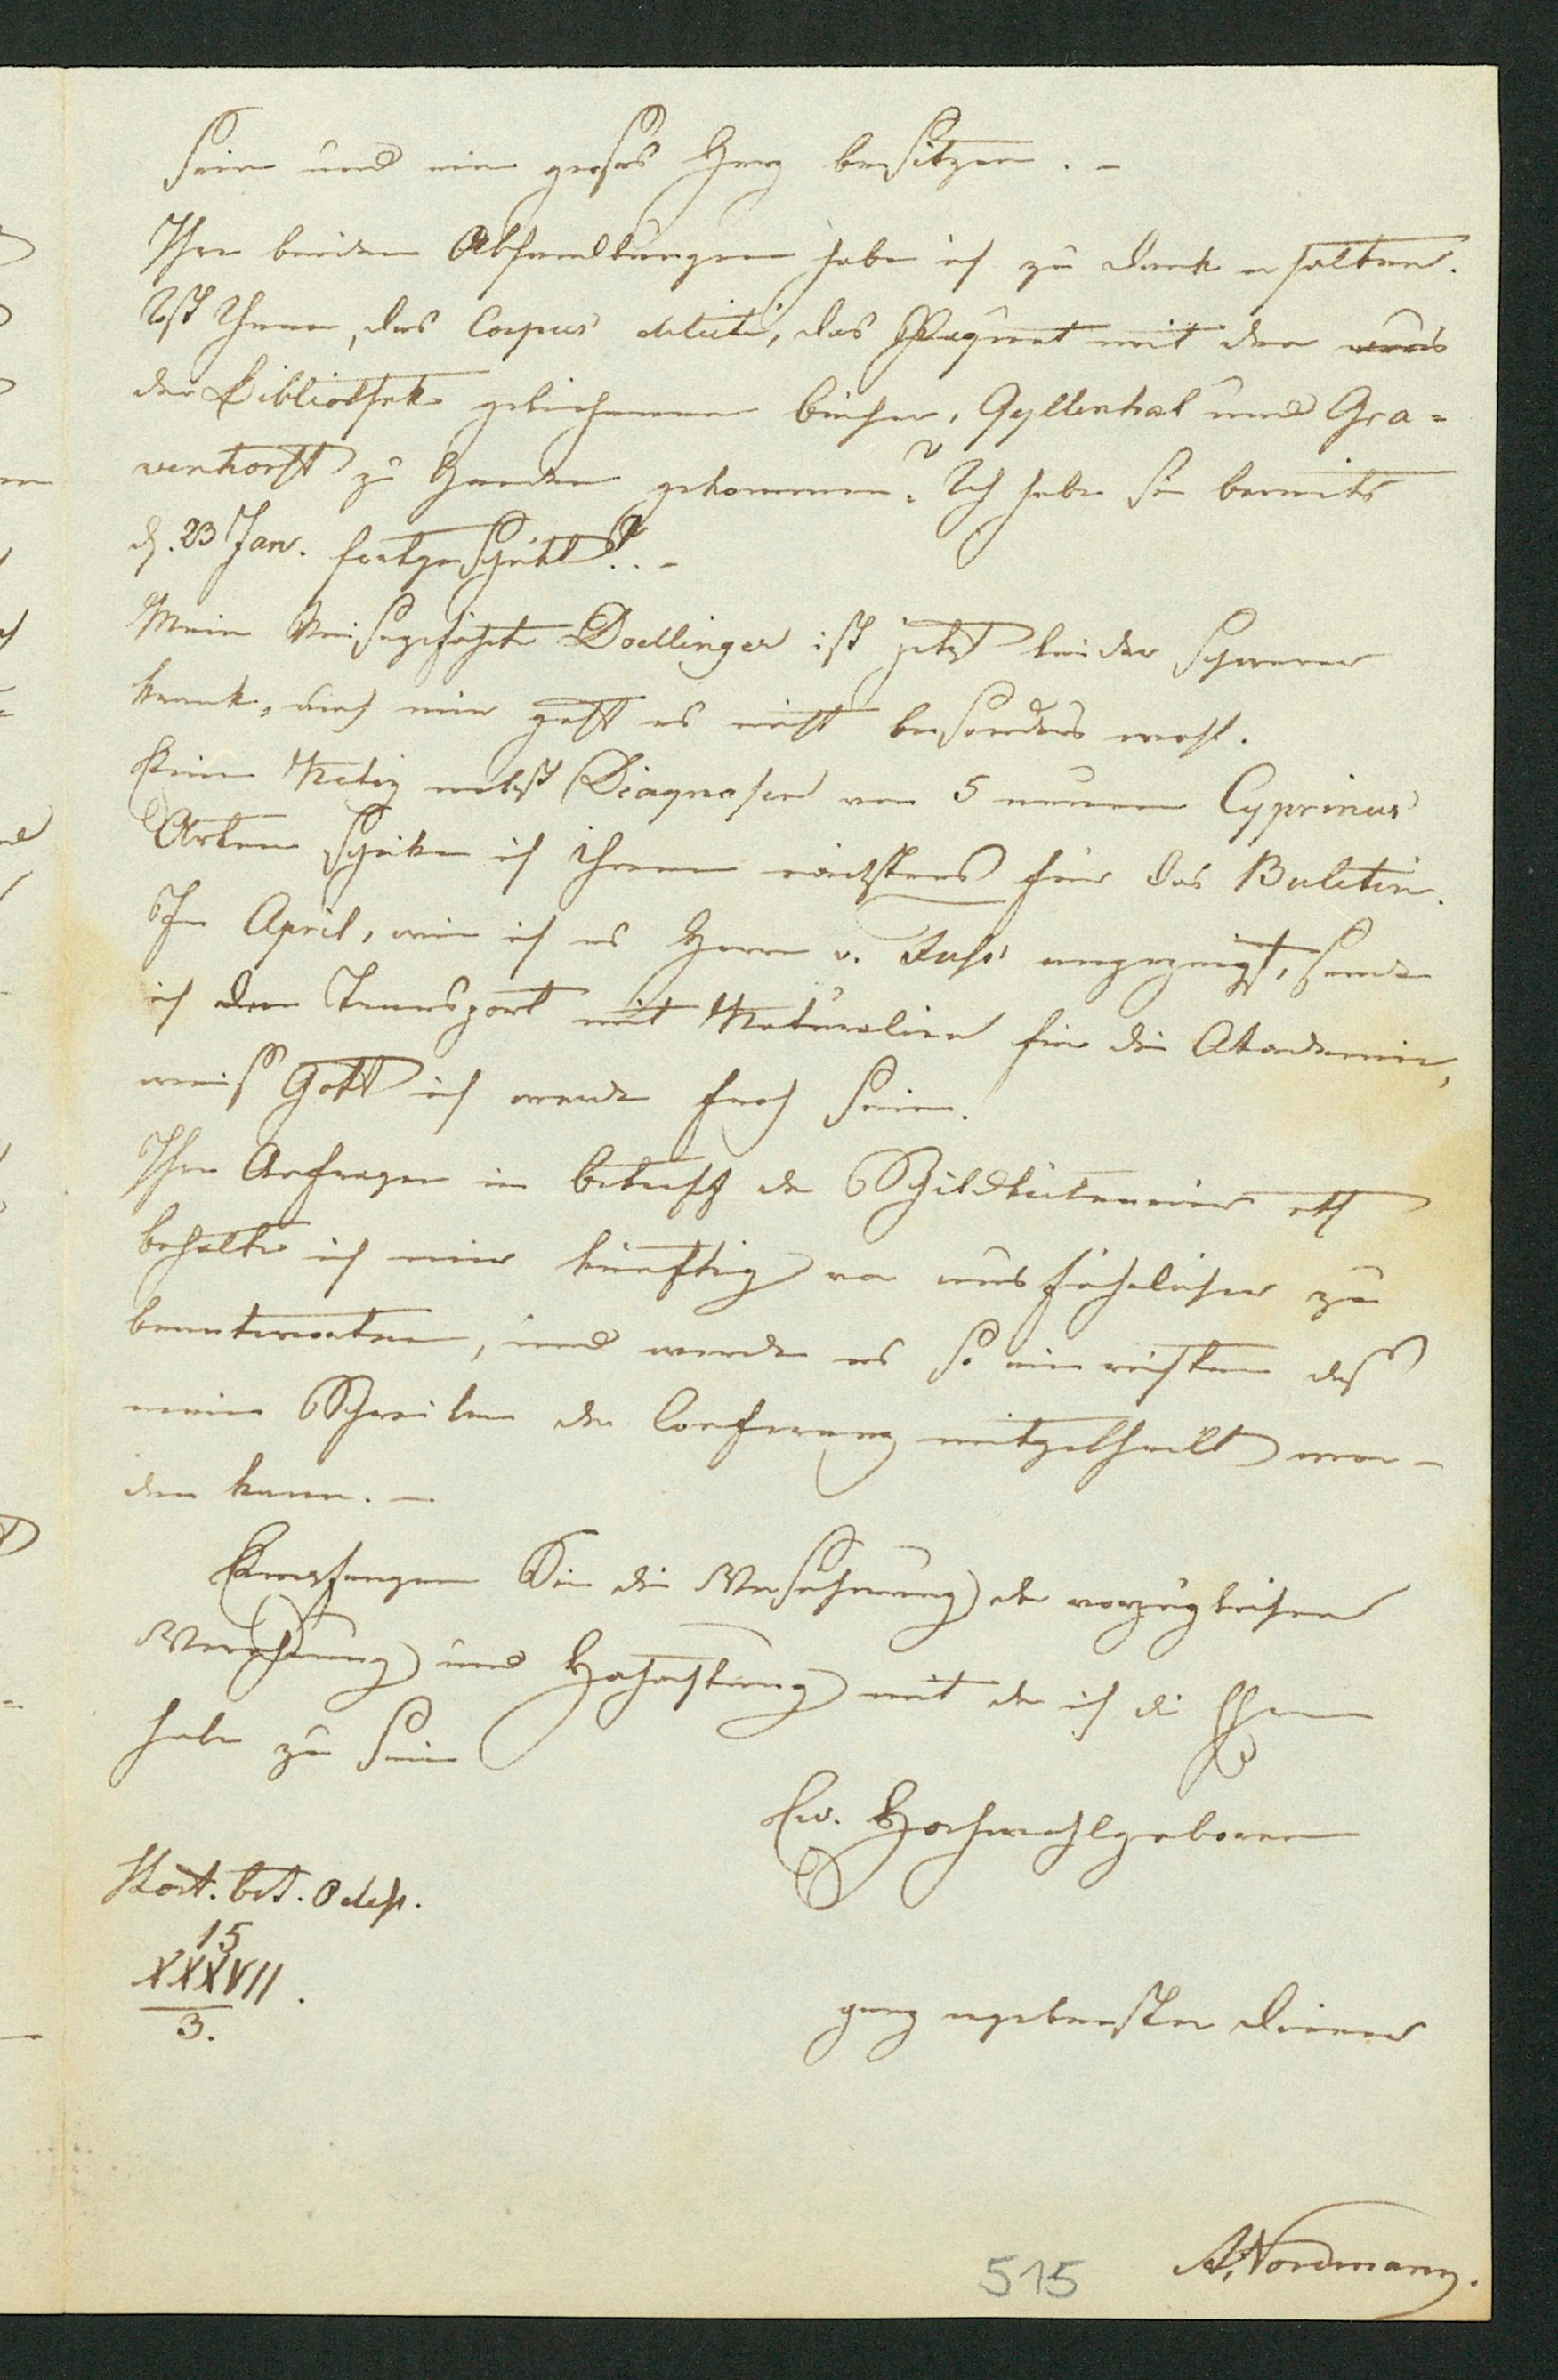 sein und ein großes Herz besitzen. –
Ihre beiden Abhandlungen habe ich zu Dank erhalten.
Ist Ihnen, das Corpus delicti, das Paquet mit den aus
der Bibliothek geliehenen Bücher, Gyllenhal und Gra-
venhorst zu Handen gekommen? Ich habe sie bereits
d. 23 Jan. fortgeschikt!. –
Mein Reisegefährte Doellinger ist jetzt leider schwer
krank, auch mir geht es nicht besonders wohl.
Eine Notiz nebst Diagnosen von 5 neuen Cyprinus
Arten schike ich Ihnen nächstens für das Buletin.
Im April, wie ich es Herrn v. Fuss angezeigt, sende
ich den Transport mit Naturalien für die Akademie,
weiß Gott ich werde froh sein.
Ihre Anfragen in betreff der etc
behalte ich mir künftig vor ausführlicher zu
beantworten, und werde es so einrichten daß
mein Schreiben der Conferenz mitgetheilt wer-
den kann. –
Empfangen Sie die Versicherung der vorzüglichen
Verehrung und Hochachtung mit der ich die Ehre
habe zu sein
Ew. Hochwohlgeboren
Odess.
15
XXXVII.
3.
ganz ergebenster Diener
A. Nordmann.
515